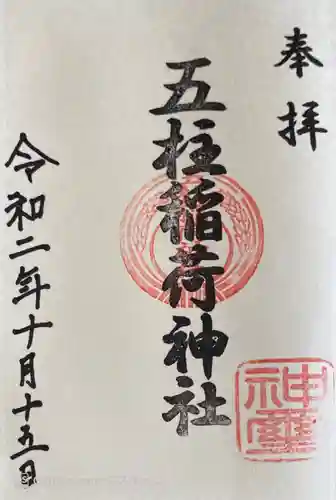 奉拝
五柱稲荷神社
令和二年十月十五日